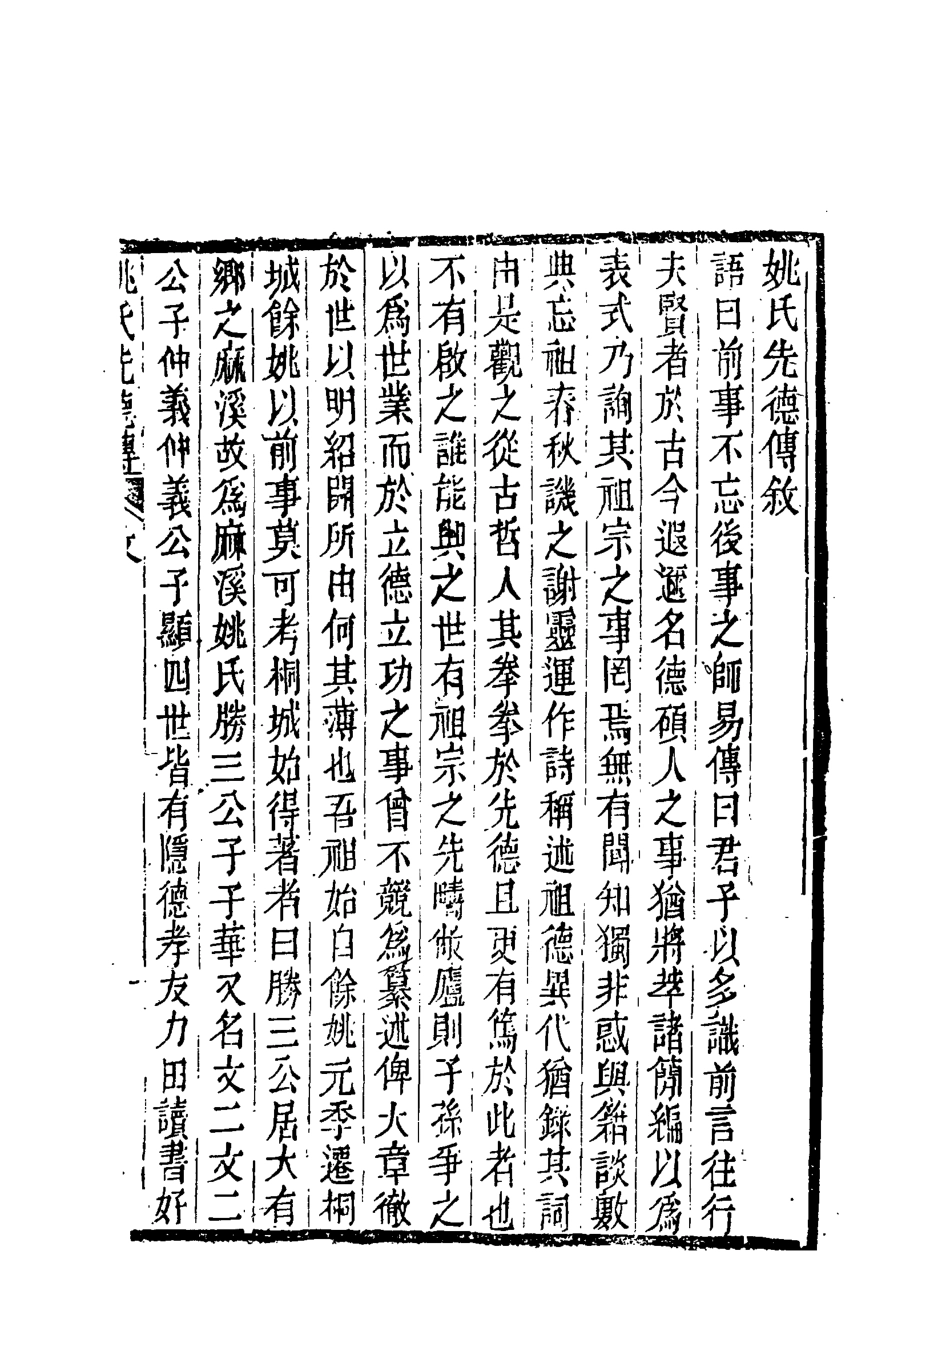 姚氏先德傳敘
語曰前事不忘後事之師易傳曰君子以多識前言往行
夫賢者於古今遐邇名德碩人之事猶將萃諸簡編以爲
表式乃詢其祖宗之事罔焉無有聞知獨非惑與籍談數
典忘祖春秋譏之謝靈運作詩稱述祖德異代猶錄其詞
由是觀之從古哲人其拳拳於先德且更有篤於此者也
不有啟之誰能與之世有祖宗之先疇敝廬則子孫爭之
以爲世業而於立德立功之事曾不競爲纂述俾大章徹
於世以明紹開所由何其薄也吾祖始自餘姚元季遷桐
城餘姚以前事莫可考桐城始得著者曰勝三公居大有
鄉之麻溪故爲麻溪姚氏勝三公子子華又名文二文二
公子仲義仲義公子顯四世皆有隱德孝友力田讀書好
姚氏先德傳